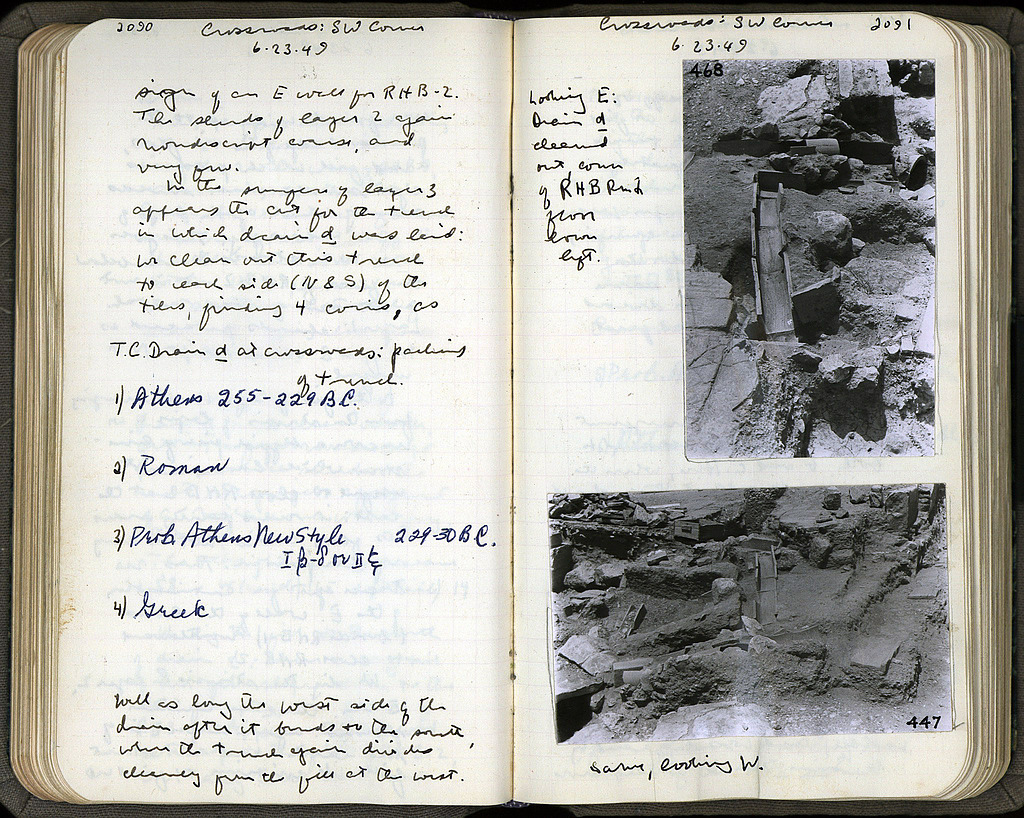 2090 Crossroads: SW Corner
6.23.49
sign of an E wall for RHB-2.
The sherds of layer 2 again
nondescript coarse, and
very few.
In the surface of layer 3
appears the cut for the trench
in which drain d was laid:
we clean out this trench
to each side (N & S) of the
tiles, finding 4 coins, as
T.C. Drain d at crossroads: packing
of trench.
1) Athens 255-229 B.C.
2) Roman
3) Prob. Athens New Style 229-30 B.C.
4) Greek
well as along the west side of the
drain after it bends to the south,
where the trench again divides
cleanly from the fill at the west.
Crossroads: SW Corner 2091
6.23.49
Looking E:
Drain d
cleaned
out, corner
of RHB
floor
lower
left.
468
447
Same, looking W.